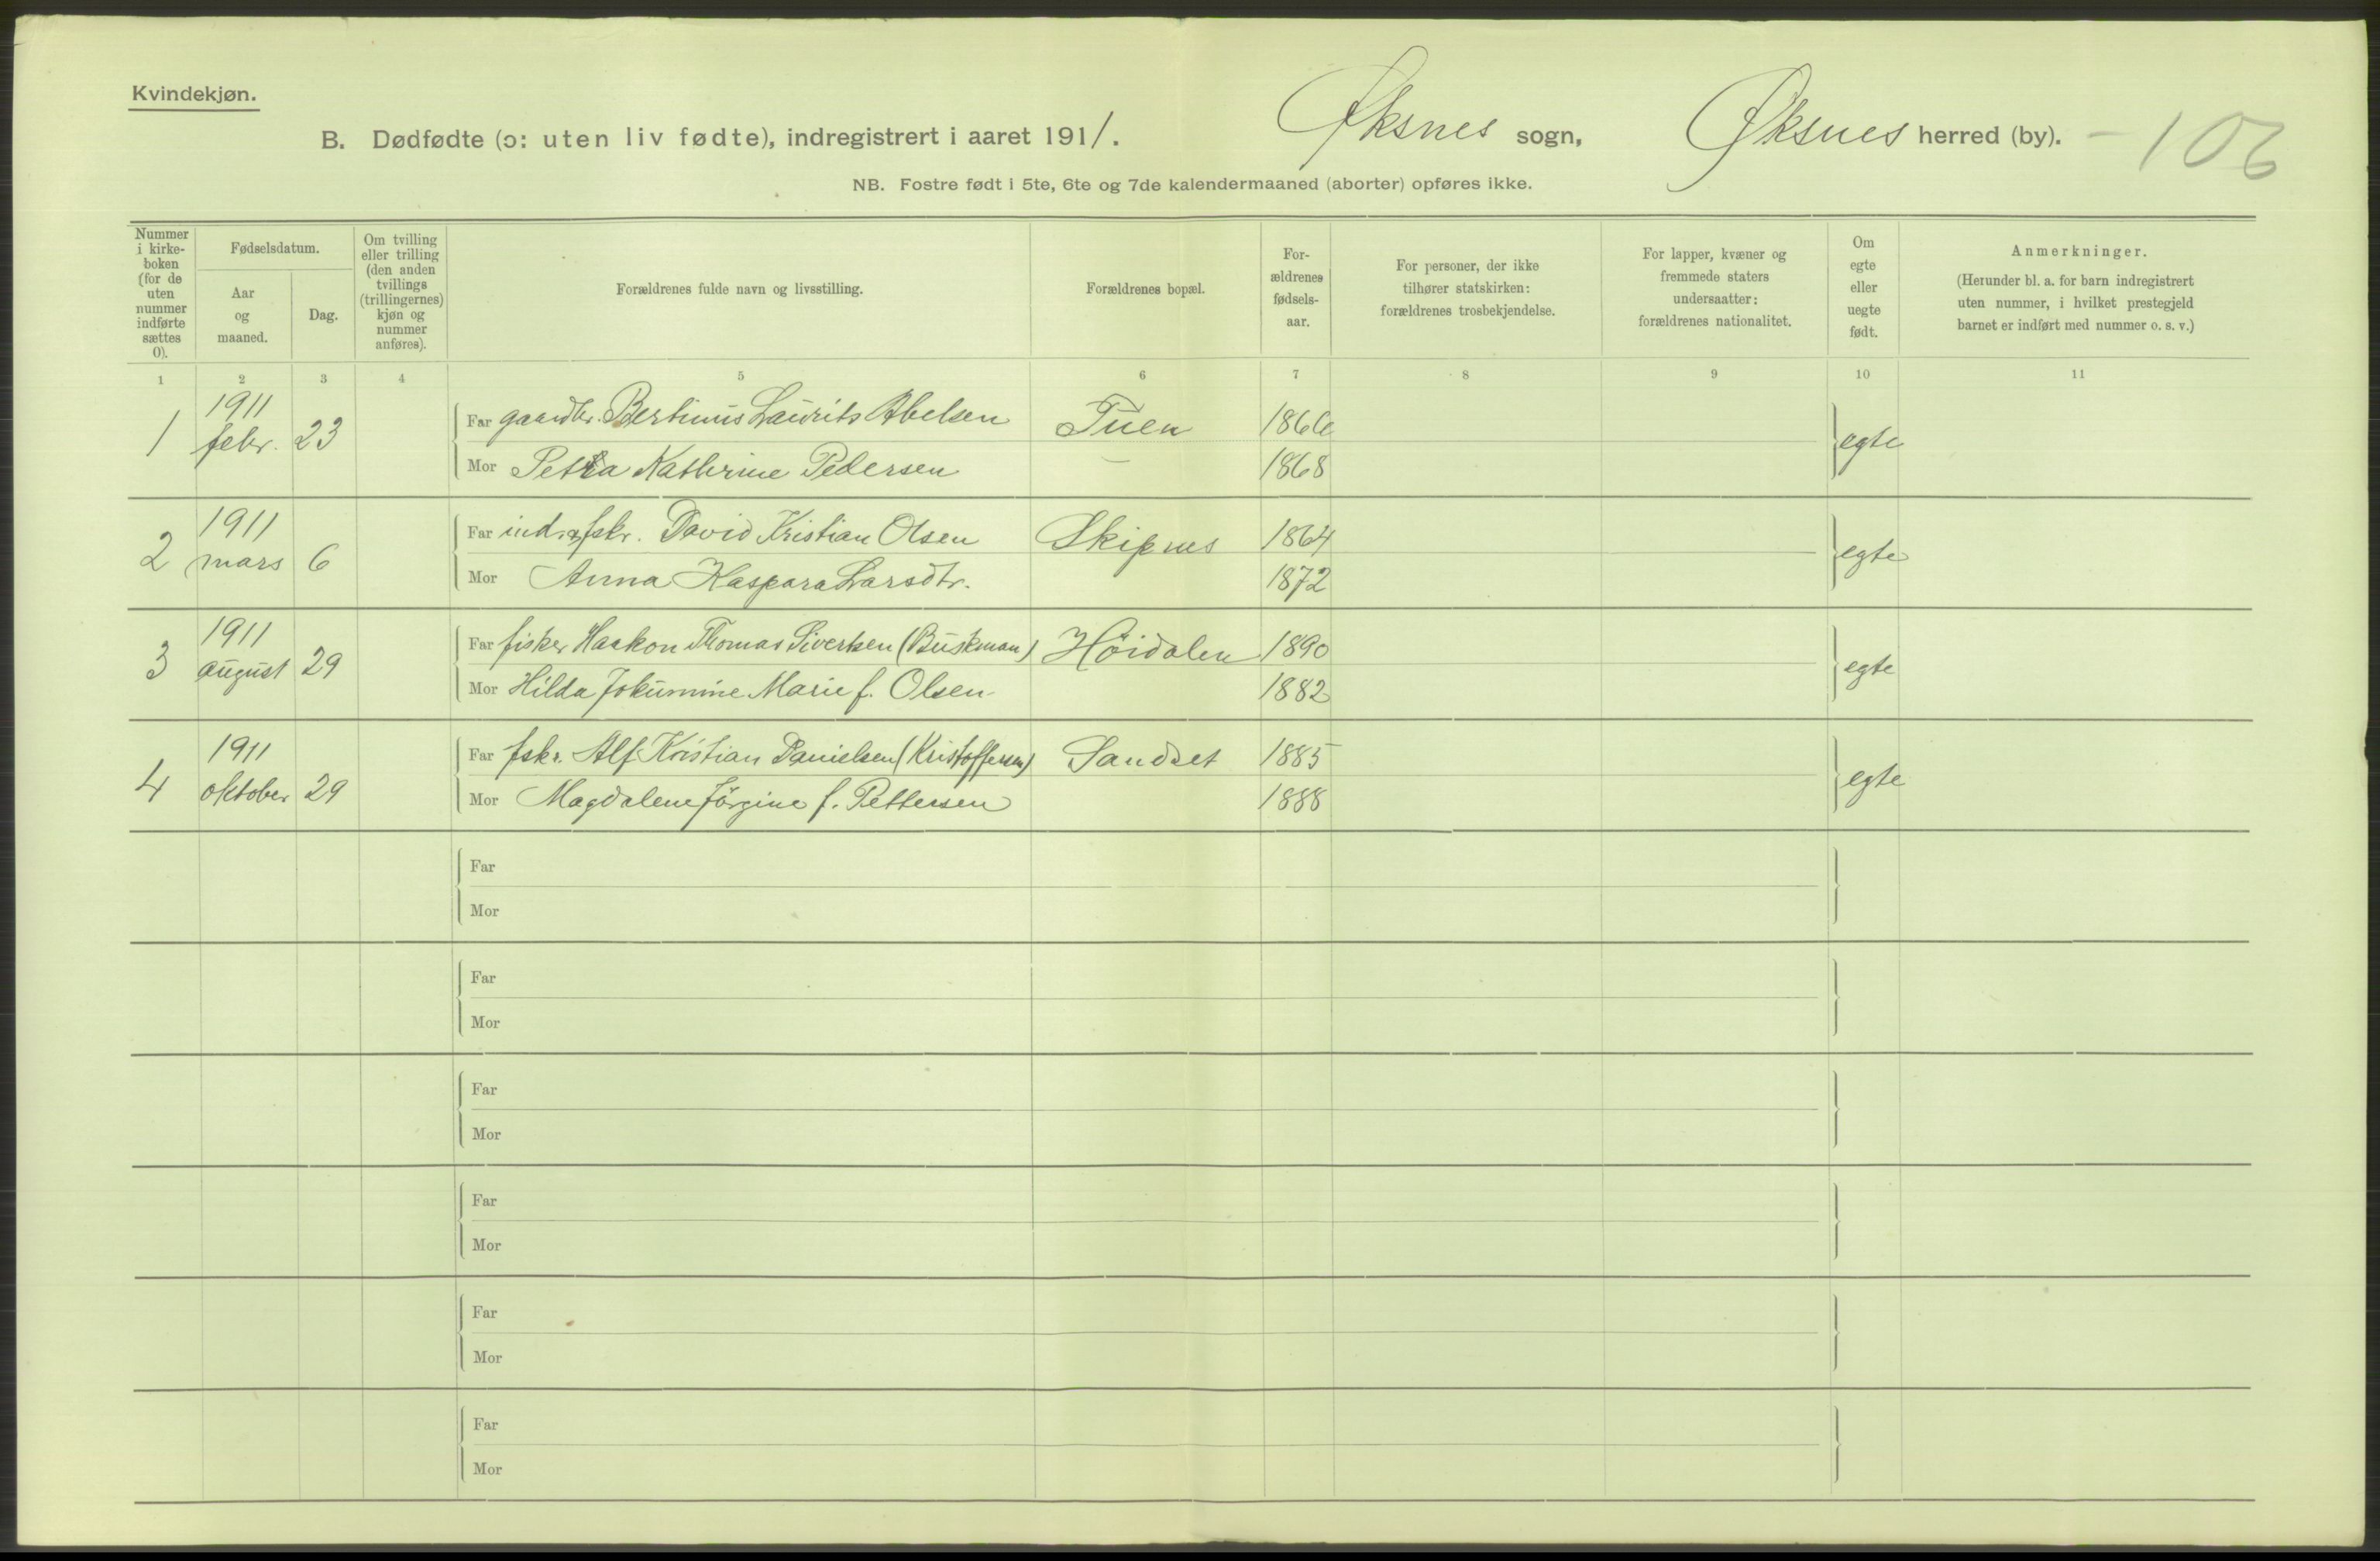 Kvindekjøn.
B. Dødfødte (ɔ: uten liv fødte), indregistrert i aaret 1911. Øksnes sogn, Øksnes herred (by). – 106
NB. Fostre født i 5te, 6te og 7de kalendermaaned (aborter) opføres ikke.
Nummer i kirke-boken (for de uten nummer indførte sættes 0).
Fødselsdatum.
Aar og maaned.
Dag.
Om tvilling eller trilling (den anden tvillings (trillingernes) kjøn og nummer anføres).
Forældrenes fulde navn og livsstilling.
Forældrenes bopæl.
For-ældrenes fødsels-aar.
For personer, der ikke tilhører statskirken: forældrenes trosbekjendelse.
For lapper, kvæner og fremmede staters undersaatter: forældrenes nationalitet.
Om egte eller uegte født.
Anmerkninger.
(Herunder bl. a. for barn indregistrert uten nummer, i hvilket prestegjeld barnet er indført med nummer o. s. v.)
1 2 3 4 5 6 7 8 9 10 11
1 1911 febr. 23 Far gaardbr. Bertinus Laurits Abelsen Tuen 1866 egte
Mor Petra Kathrine Pedersen — 1868
2 1911 mars 6 Far ind. & fskr. David Kristian Olsen Skipnes 1864 egte
Mor Anna Kaspara Larsdtr. 1872
3 1911 august 29 Far fisker Haakon Thomas Sivertsen (Buskman) Höidalen 1890 egte
Mor Hilda Jokumine Marie f. Olsen 1882
4 1911 oktober 29 Far fskr. Alf Kristian Danielsen (Kristoffersen) Sandset 1885 egte
Mor Magdalene Jörgine f. Pettersen 1888
Far
Mor
Far
Mor
Far
Mor
Far
Mor
Far
Mor
Far
Mor